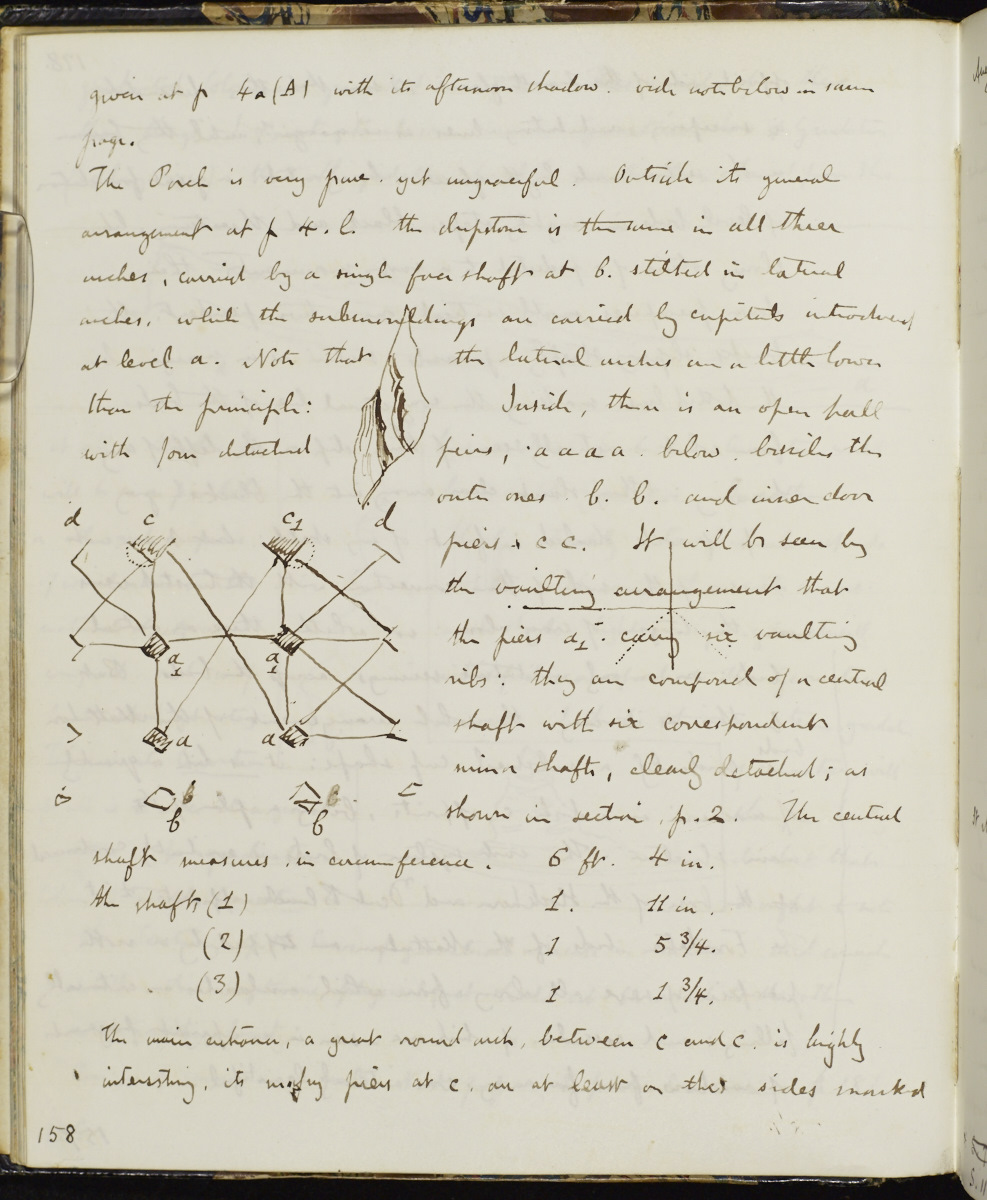 given at p 4a (A) with its afternoon shadow. vide note below in same
page.
The Porch is very pure. yet ungraceful. Outside its general
arrangement at p 4. l. the dripstone is the same in all three
arches, carried by a single face shaft at b. stilted in lateral
arches, while the submouldings are carried by capitals introduced
at level a. Note that the lateral arches are a little lower
than the principle: Inside, there is an open hall
with four detached piers, a a a a. below. besides the
outer ones b. b. and inner door
piers c c. It will be seen by
the vaulting arrangement that
the piers a1. carry six vaulting
ribs: they are composed of a central
shaft with six correspondent
minor shafts, clearly detached; as
shown in section, p. 2. The central
d c c1 d
a1 a1
a a
b b
shaft measures in circumference. 6 ft. 4 in.
the shafts (1) 1. 11 in.
(2) 1 5 3/4.
(3) 1 1 3/4.
The main entrance, a great round arch, between c and c. is highly
interesting, its piers at c. are at least on the sides marked
158